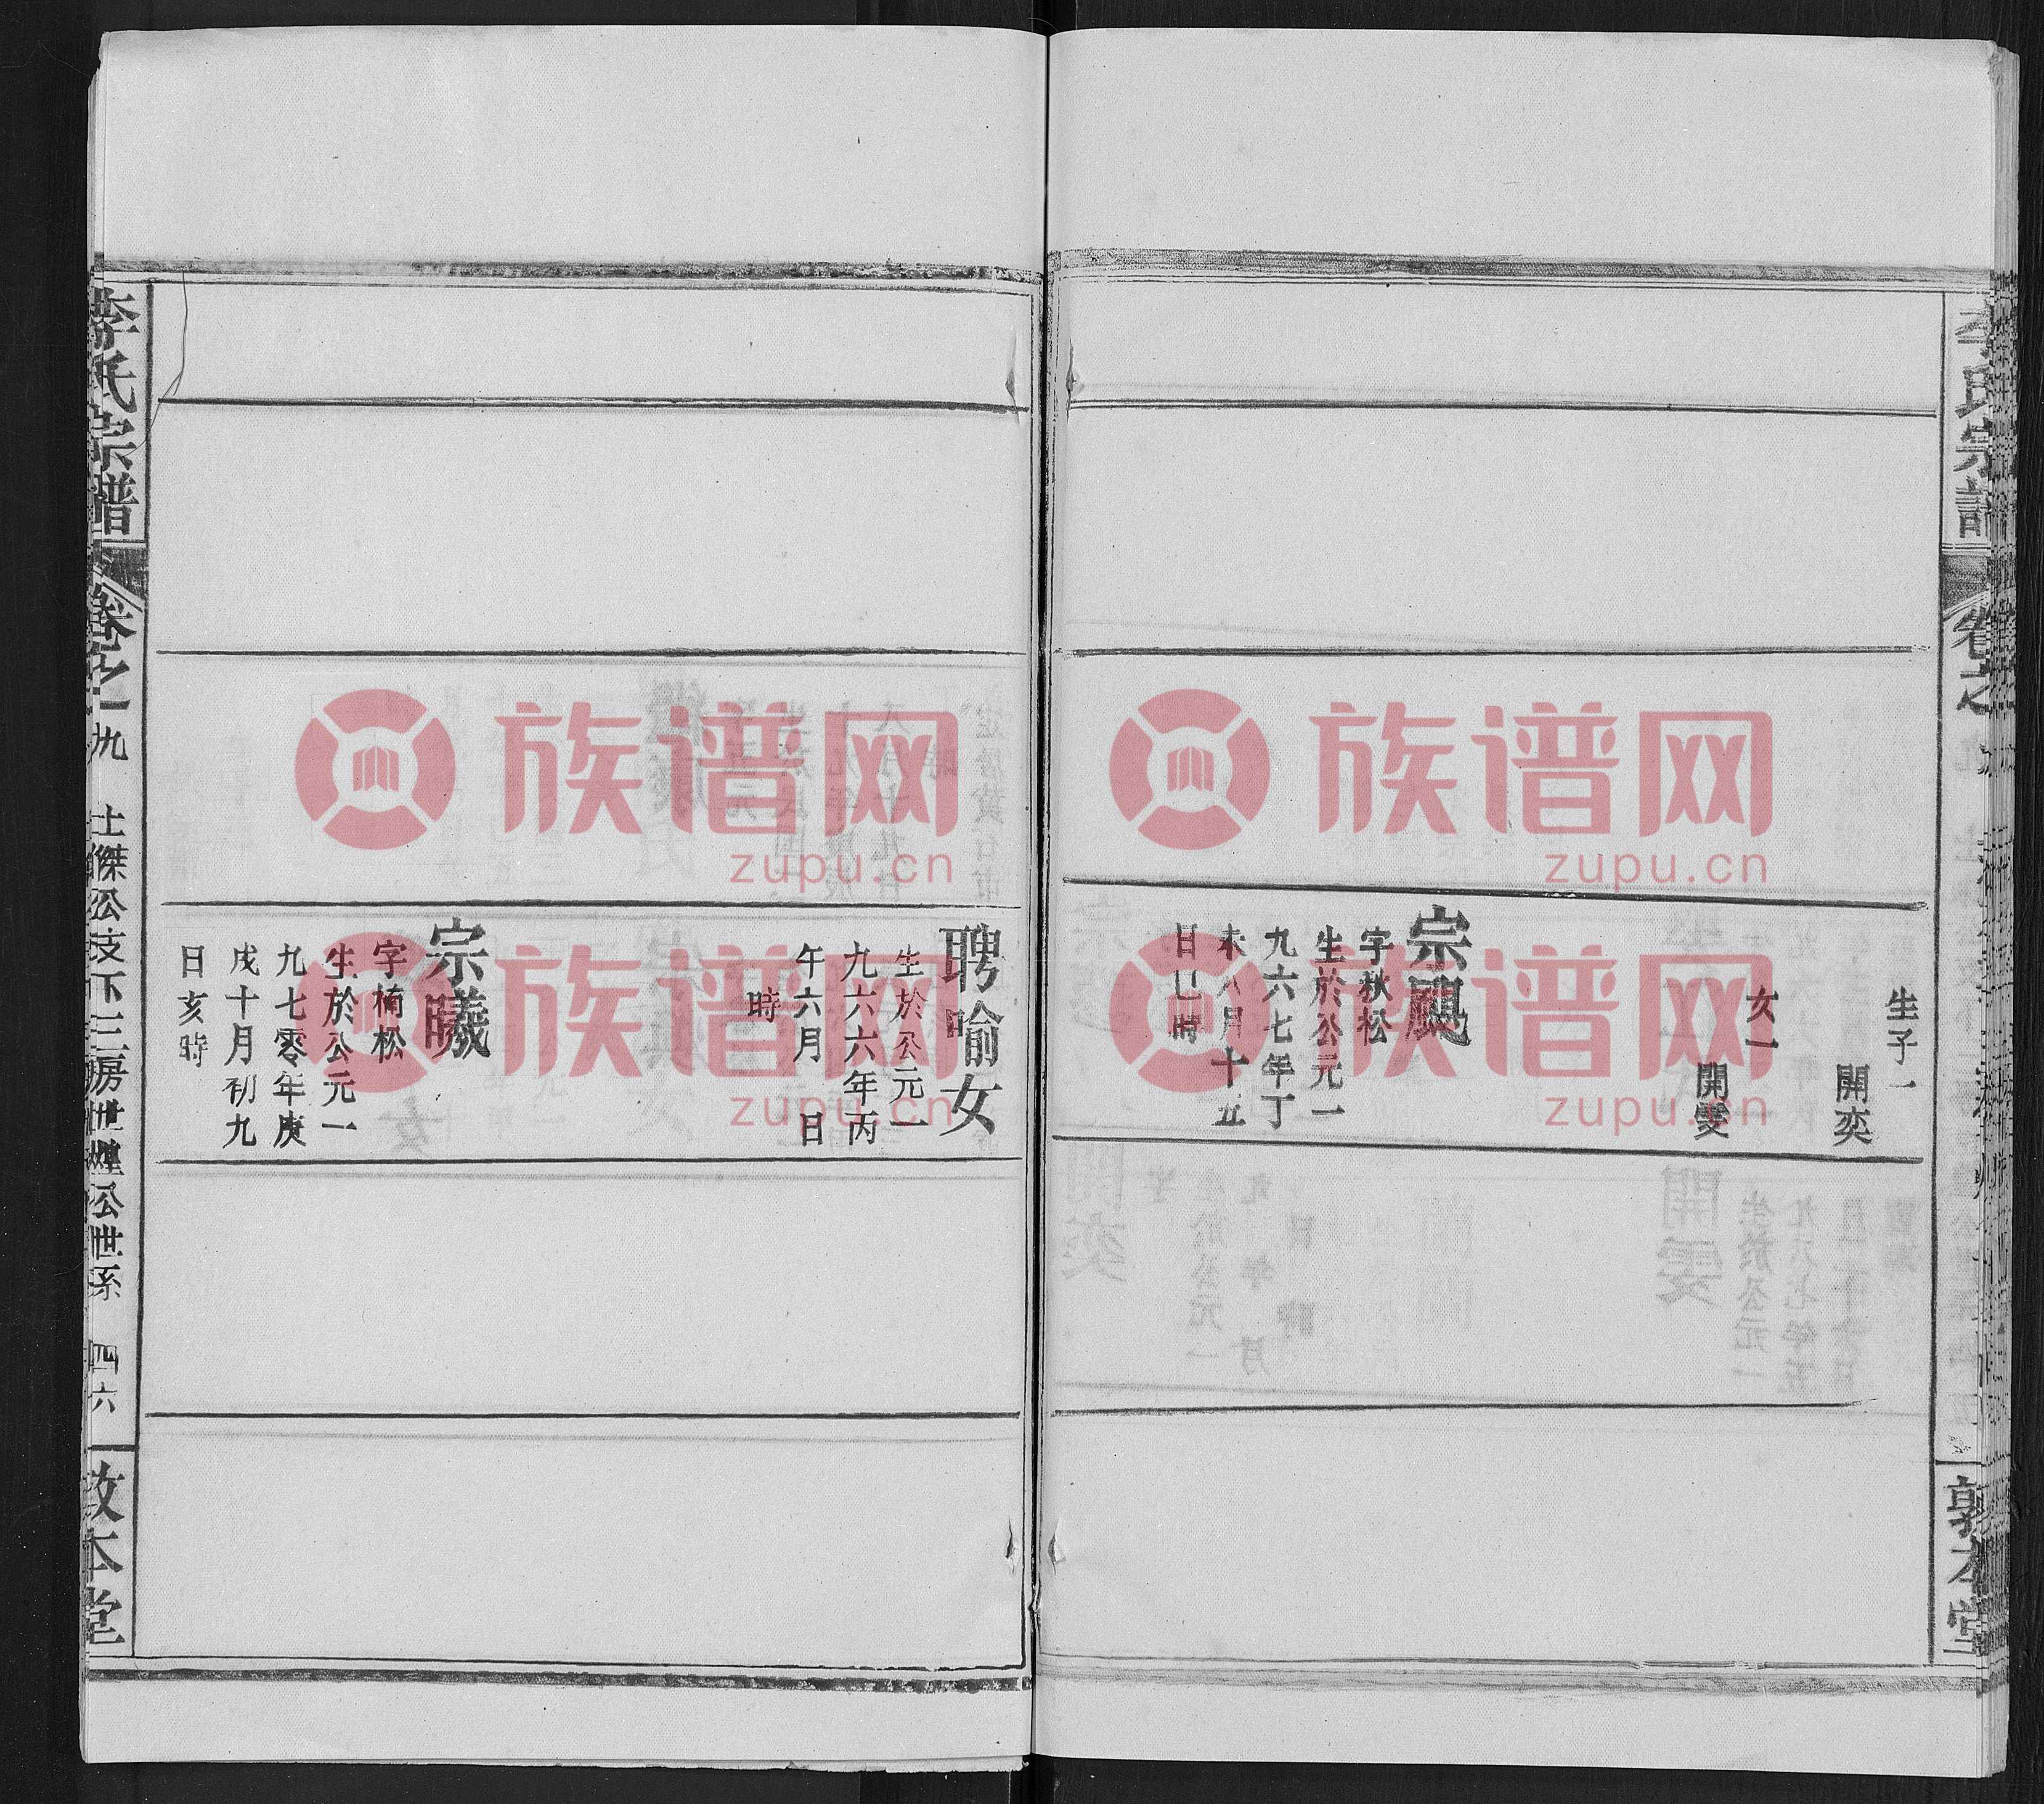 李氏宗譜
卷之
敦本堂
生子一
開奕
女一
開雯
宗颶
字秋松
生於公元一
九六七年丁
未八月十五
日巳時
聘喻女
生於公元一
九六六年丙
午六月 日
時
宗曦
字楠松
生於公元一
九七零年庚
戌十月初九
日亥時
氏宗譜
卷之一九
士傑公支下三房世煌公世系
四六
敦本堂
族谱网
zupu.cn
族谱网
zupu.cn
族谱网
zupu.cn
族谱网
zupu.cn